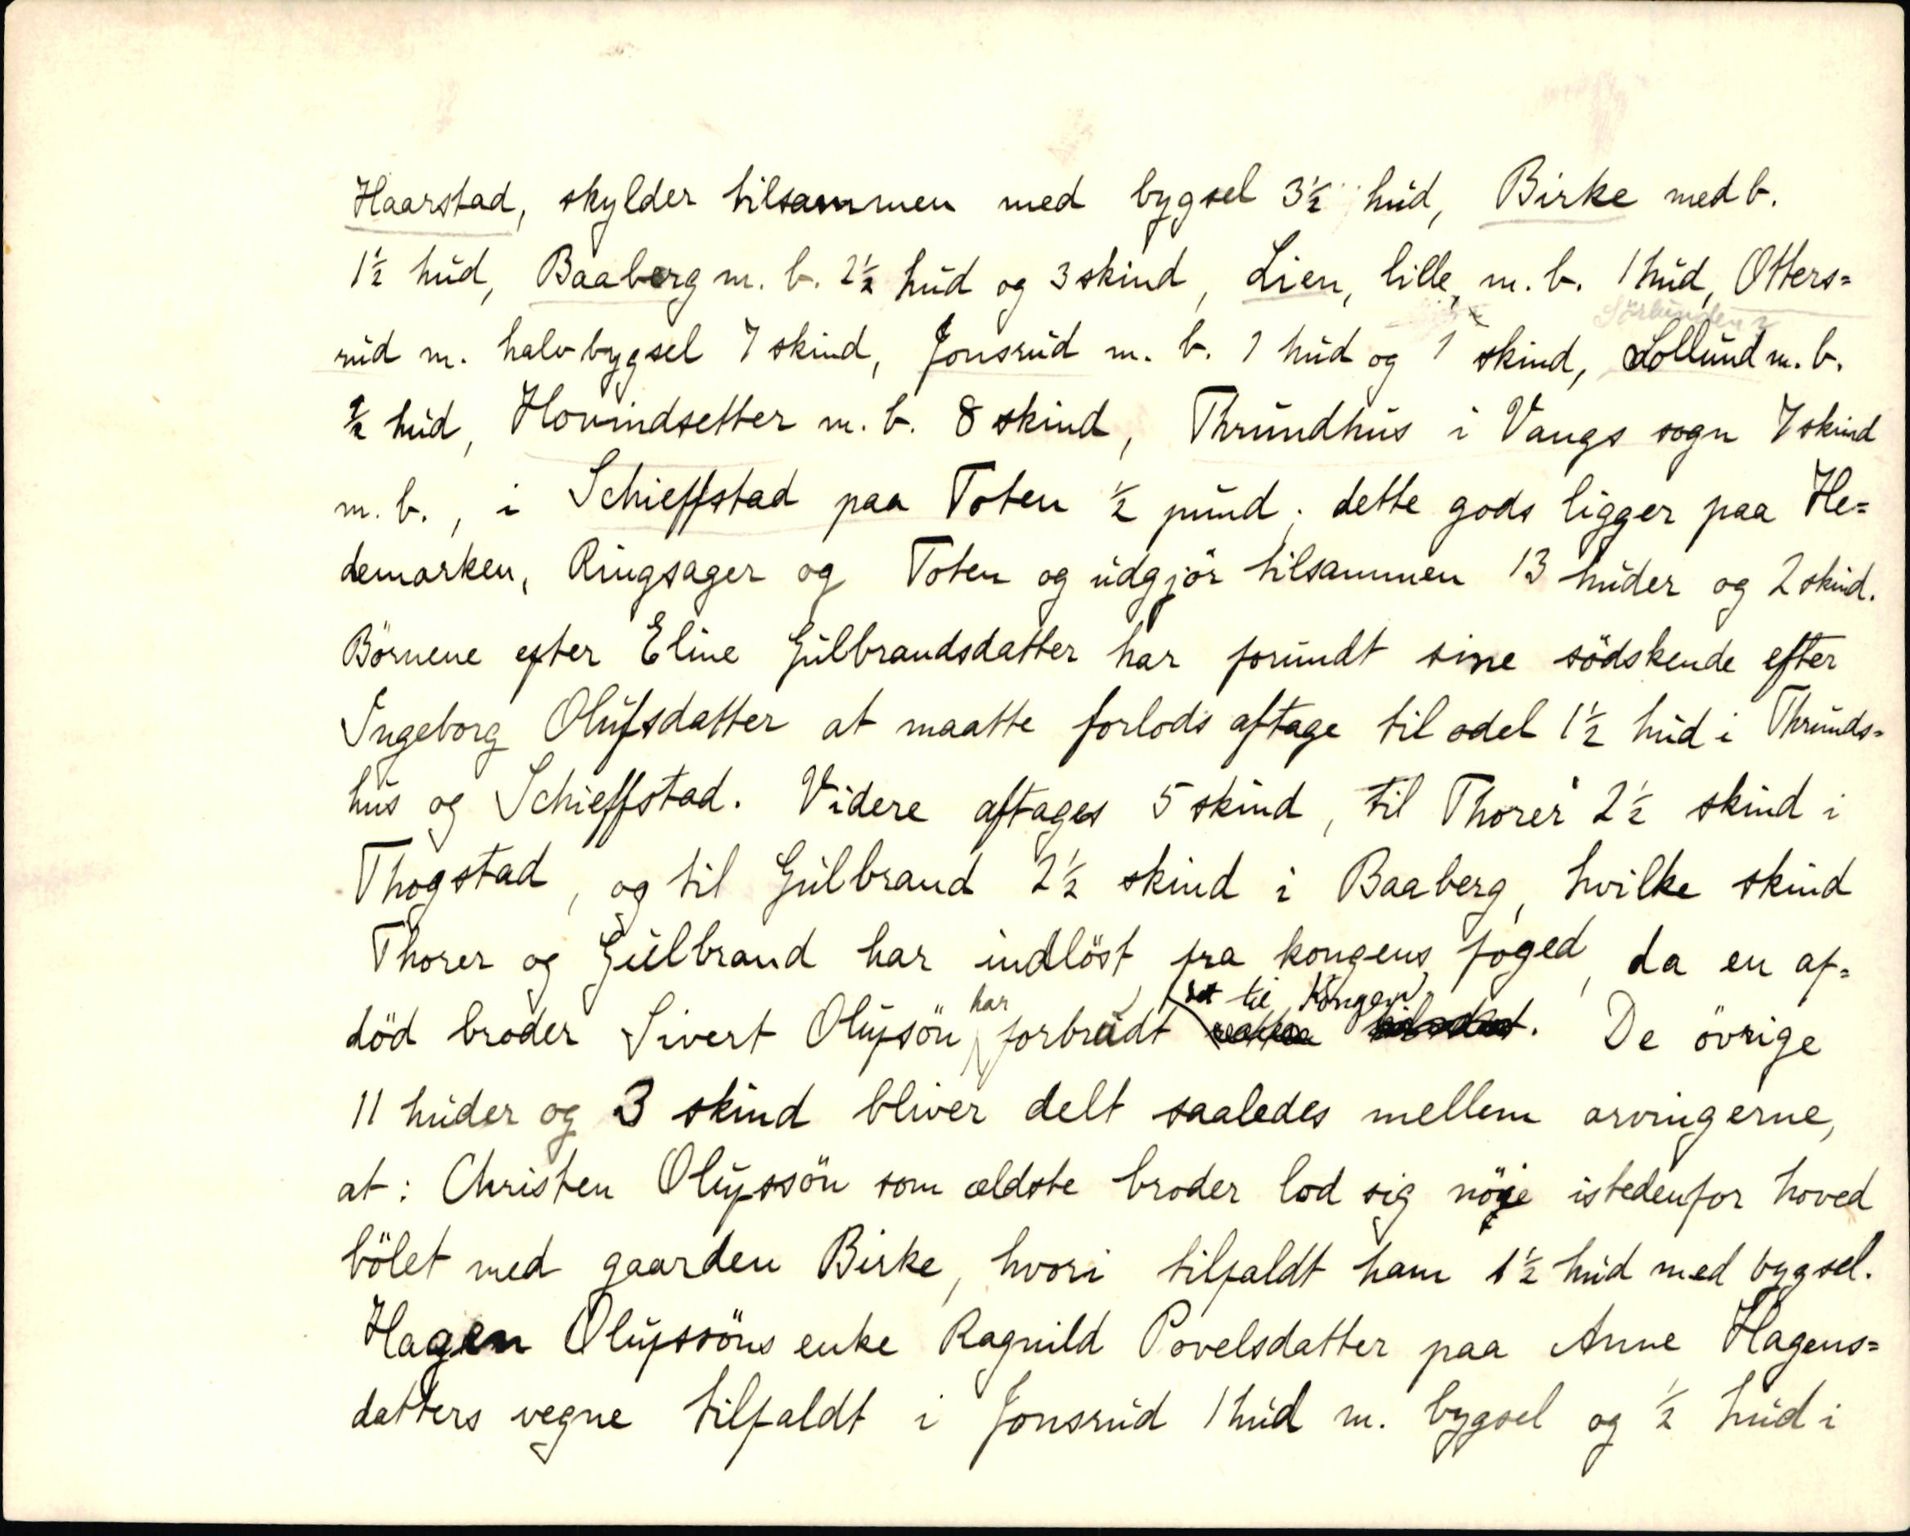 Haarstad, skylder tilsammen med bygsel 3½ hud, Birke med b.
1½ hud, Baaberg m. b. 2½ hud og 3 skind, Lien, lille, m. b. 1 hud, Otters=
rud m. halv bygsel 7 skind, Jonsrud m. b. 1 hud og 1 skind, Lollund m. b.
½ hud, Hovindsetter m. b. 8 skind, Thrundhus i Vangs sogn 7 skind
m. b., i Schieffstad paa Toten ½ pund; dette gods ligger paa He=
demarken, Ringsager og Toten og udgjör tilsammen 13 huder og 2 skind.
Börnene efter Eline Gulbrandsdatter har forundt sine södskende efter
Ingeborg Olufsdatter at maatte forlods aftage til odel 1½ hud i Thrunds=
hus og Schieffstad. Videre aftages 5 skind, til Thorer 2½ skind i
Thogstad, og til Gulbrand 2½ skind i Baaberg, hvilke skind
Thorer og Gulbrand har indlöst fra kongens foged, da en af=
död broder Sivert Olufsön har forbrudt det til Kongen. De övrige
11 huder og 3 skind bliver delt saaledes mellem arvingerne,
at: Christen Olufssön som ældste broder lod sig nöje istedenfor hoved
bölet med gaarden Birke, hvori tilfaldt ham 1½ hud med bygsel.
Hagen Olufssöns enke Ragnild Povelsdatter paa Anne Hagens=
datters vegne tilfaldt i Jonsrud 1 hud m. bygsel og ½ hud i